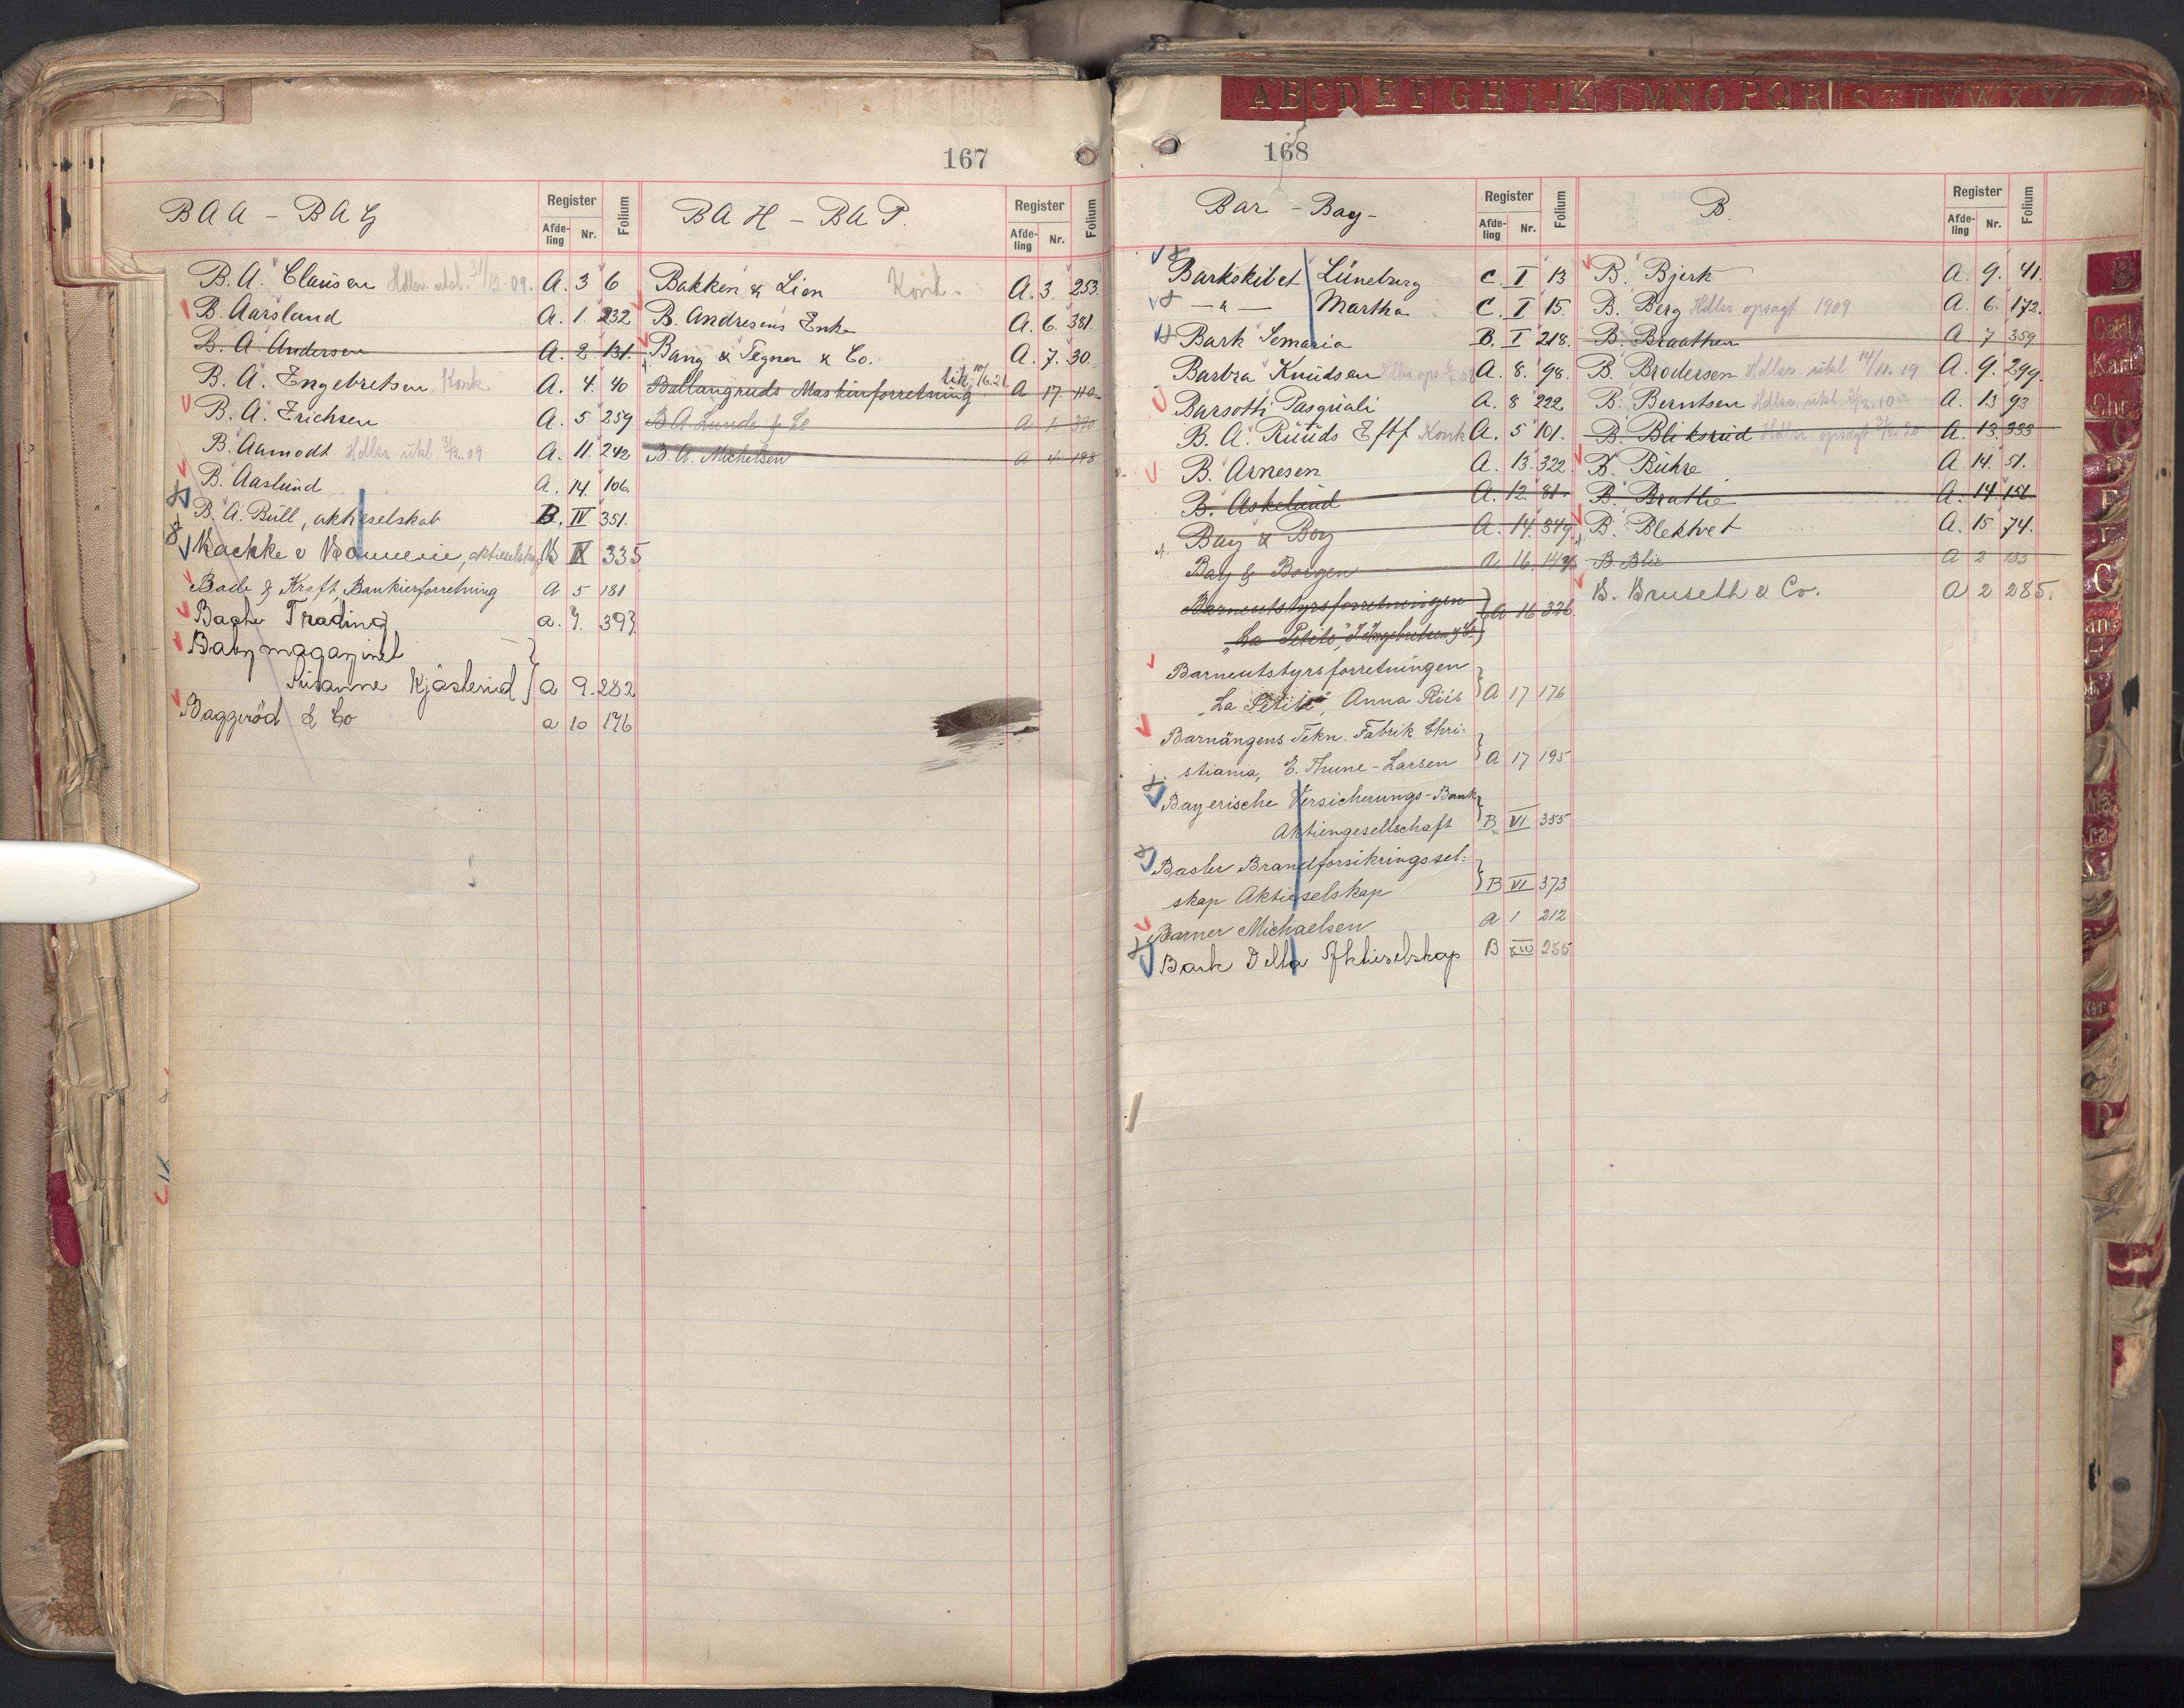 167
BAA - BAG
Register
Afde-ling Nr. Folium
B. A. Clausen Hdlsv. utsl. 31/12-09. A. 3 6
B. Aarsland A. 1. 232
B. A. Andersen A. 2 131.
B. A. Engebretsen Konk. A. 4. 40
B. A. Erichsen A. 5 259
B. Aamodt Hdlsv. utsl. 3/12.09 A. 11. 242
B. Aaslund A. 14. 106.
B. A. Bull, aktieselskab B. IV 351.
aktieselskap B 335
Bade & Kraft, Bankierforretning A 5 181
Bache Trading a. 7. 397.
Babymagazinet
Susanne Kjøsterud a 9. 282
Baggerød & Co a 10 176
BAH - BAP.
Register
Afde-ling Nr. Folium
Bakken & Lien Konk. A. 3. 253.
B. Andresens Enke A. 6. 381.
Bang & Tegner & Co. A. 7. 30.
Ballangruds Maskinforretning lik. 10/6.21 A 17 110
B. A. Lunde & Co A 1 370
B. A. Michelsen A 4 198
168
ABCDEFGHIJKLMNOPQRSTUVWXYZ
Bar - Bay-
Register
Afde-ling Nr. Folium
Barkskibet Lüneburg C. I 13
— " — Martha C. I 15.
Bark Semaria B. I 218.
Barbra Knudsen A. 8. 98.
Barsotti Pasquali A. 8 222.
B. A. Ruuds Eftf Konk A. 5 101.
B. Arnesen A. 13. 322.
B. Askelund A. 12. 81.
Bay & Boy A. 14. 349.
Bay & Borgen A. 16. 149.
Barneutstyrsforretningen
"La Petite", J. Engebretsen & Co A 16 326.
Barneutstyrsforretningen
"La Petite", Anna Riis A 17 176
Barnängens Tekn. Fabrik Chri-
stiania, E. Thune-Larsen A 17 195
Bayerische Versicherungs-Bank
Aktiengesellschaft B VI 355
Basler Brandforsikringssel-
skap Aktieselskap B VI 373
Barner Michaelsen a 1 212
Bark Della Aktieselskap B XIV 255
B.
Register
Afde-ling Nr. Folium
B. Bjerk A. 9. 41.
B. Berg Hdlsv opsagt 1909 A. 6. 172.
B. Braathen A 7 359
B. Brodersen Hdlsv. utsl 14/11.19 A. 9. 299.
B. Berntsen Hdlsv. utsl. A. 13 93
B. Bliksrud Hdlsv. opsagt A. 13. 333
B. Buhre A 14. 51.
B. Brathe A. 14 151
B. Blektvet A. 15. 74.
B. Blix A 2 133
B. Bruseth & Co. A 2 285.